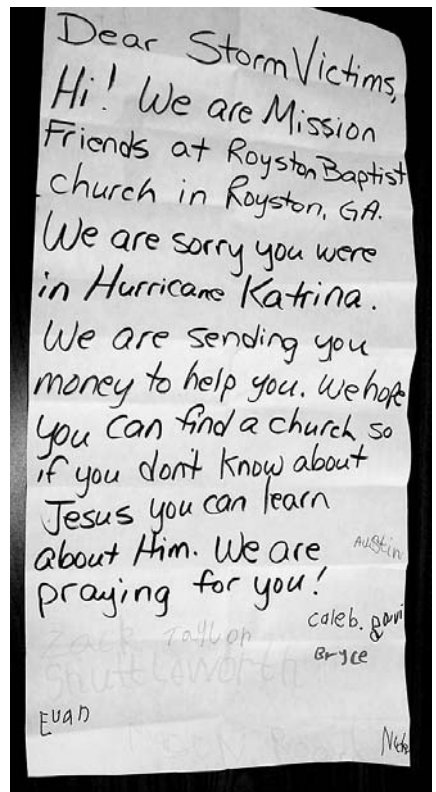 Dear Storm Victims,
Hi! We are Mission
Friends at Royston Baptist
church in Royston, GA.
We are sorry you were
in Hurricane Katrina.
We are sending you
money to help you. We hope
you can find a church, so
if you don't know about
Jesus you can learn
about Him. We are
praying for you!
Austin
Caleb.
Zack Taylor
Bryce
Shuttleworth
Evan